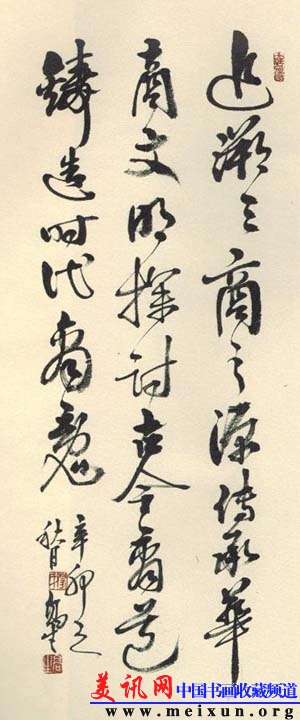 追溯三商之源傳承華
商文明探讨古今商道
鑄造时代商魂
辛卯之
秋月
美讯网 中国书画收藏频道
www.meixun.org